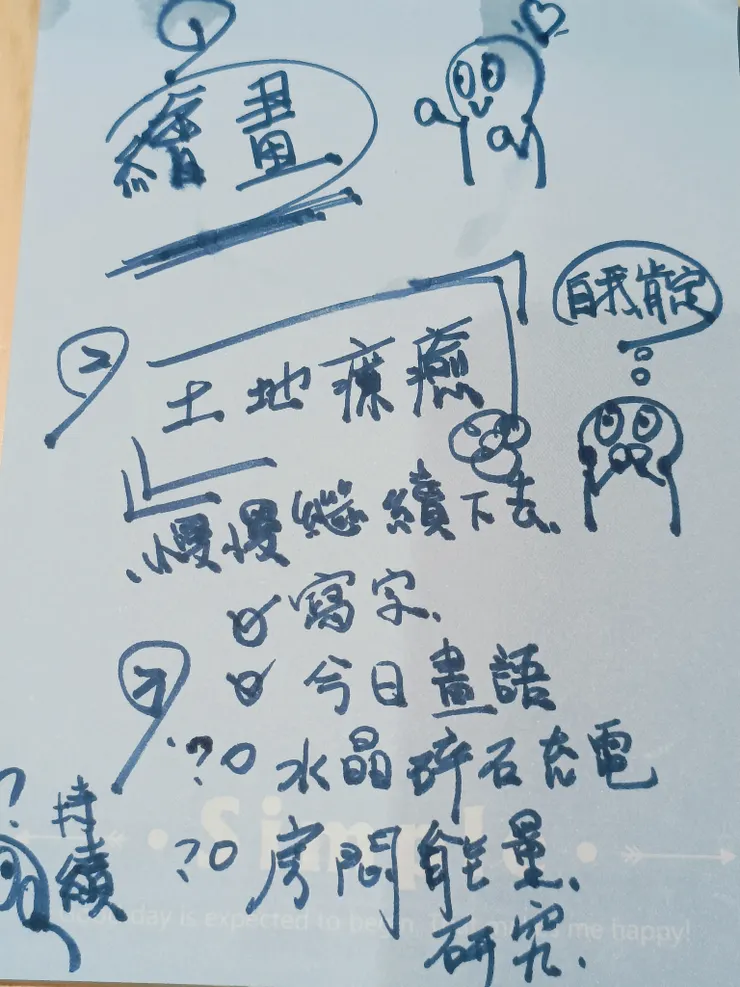 1
繪畫
自我肯定
2
土地療癒
慢慢繼續下去
寫字
3
今日畫語
?○ 水晶碎石充電
持續
?○ 房間能量
研究
?
Simpl
day is expected to be
me happy!